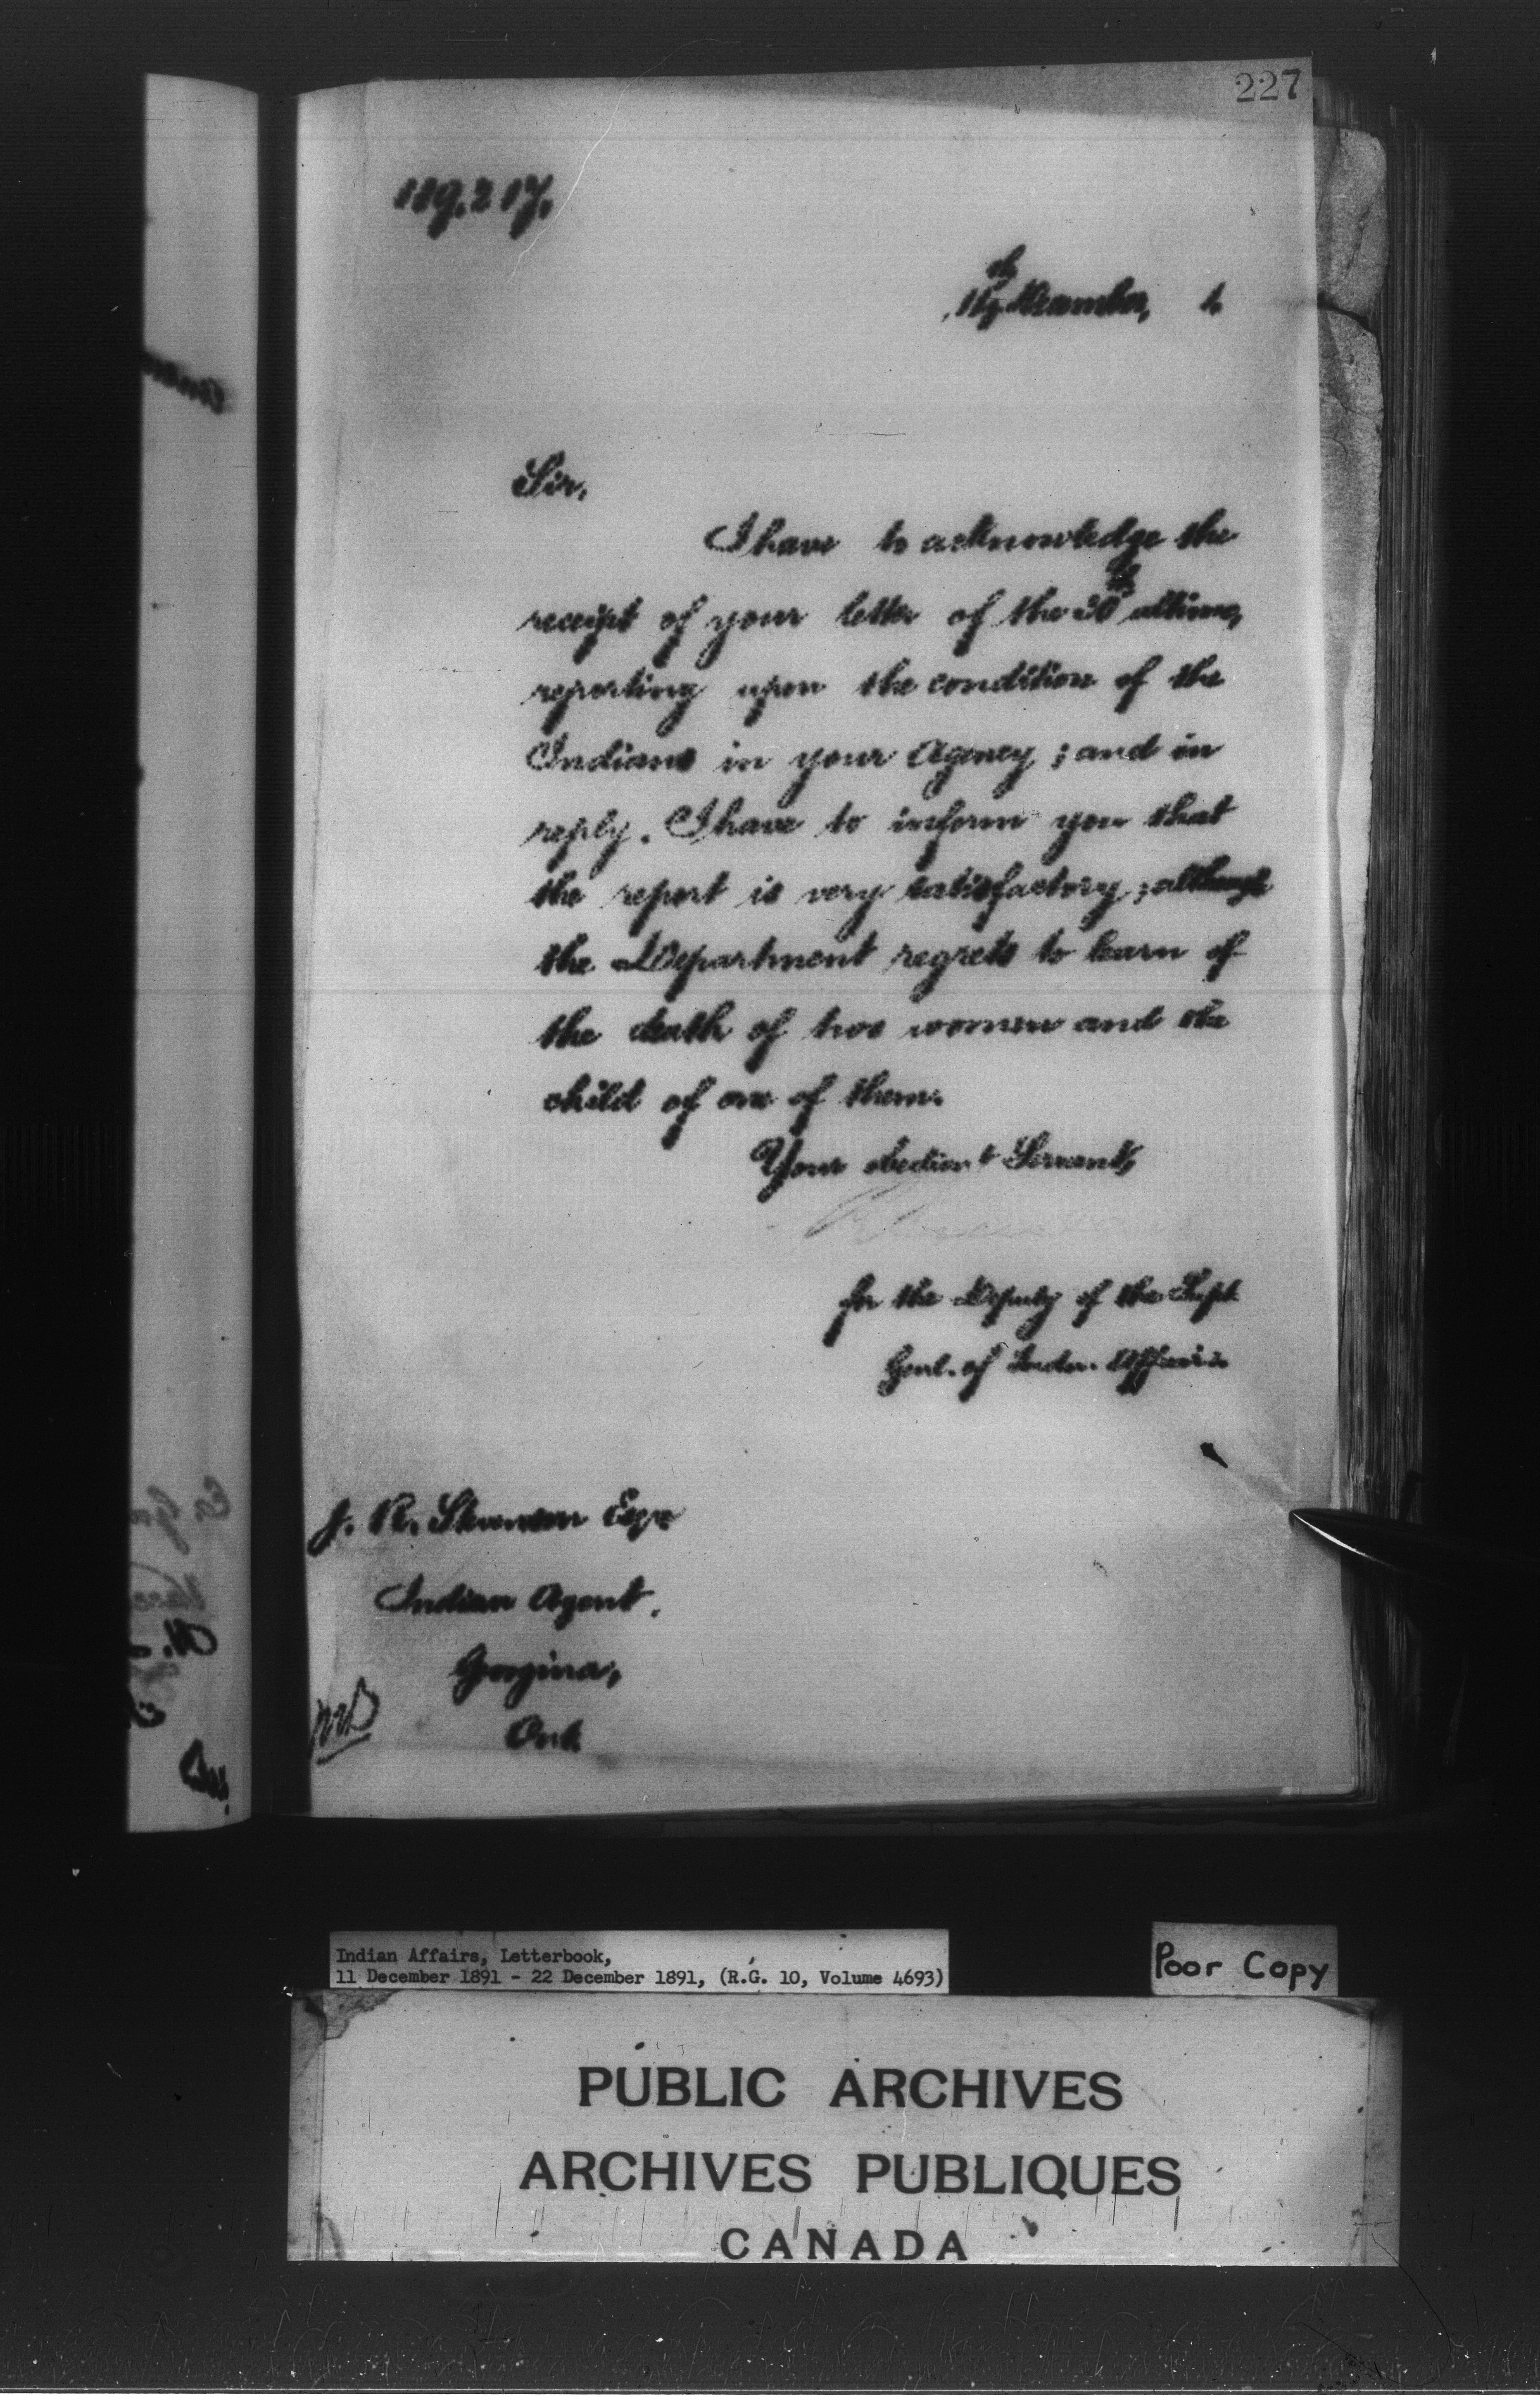 227
119,217.
th
December, 1.
Sir,
I have to acknowledge the
receipt of your letter of the 30th ultimo,
reporting upon the condition of the
Indians in your Agency; and in
reply. I have to inform you that
the report is very satisfactory; although
the Department regrets to learn of
the death of two women and the
child of one of them.
Your obedient Servant,
for the Deputy of the Supt
Genl. of Indn. Affairs
J. R. Stevenson Esqre
Indian Agent.
Georgina,
Ont.
Indian Affairs, Letterbook,
11 December 1891 - 22 December 1891, (R.G. 10, Volume 4693)
Poor Copy
PUBLIC ARCHIVES
ARCHIVES PUBLIQUES
CANADA